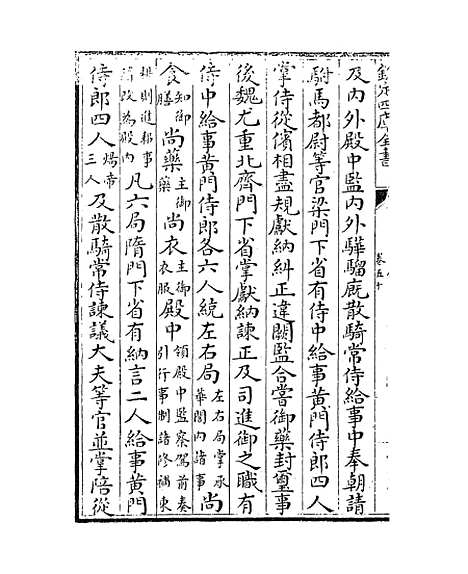 欽定四庫全書
卷五十
及内外殿中監内外驊騮廐散騎常侍給事中奉朝請
駙馬都尉等官梁門下省有侍中給事黄門侍郎四人
掌侍從儐相盡規獻納糾正違闕監合嘗御藥封璽事
後魏尤重北齊門下省掌獻納諫正及司進御之職有
侍中給事黄門侍郎各六人統左右局左右局掌承華閣内諸事尚
食知御膳尚藥主御藥尚衣主御衣服殿中領殿中監察駕前奏引行事制諸修補東
耕則進耒耜事皆改為殿内凡六局隋門下省有納言二人給事黄門
侍郎四人煬帝三人及散騎常侍諫議大夫等官並掌陪從